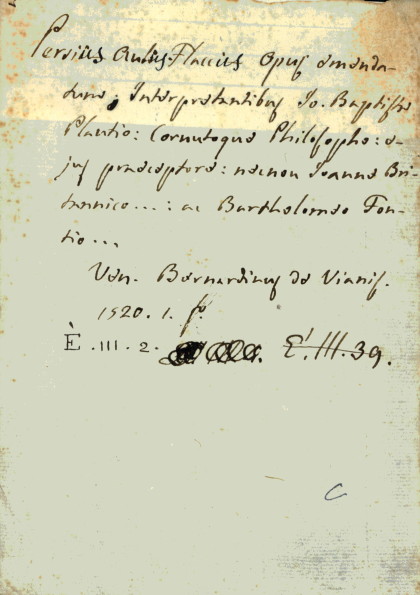 Persius Aulus Flaccus Opus emenda-
tum; Interpretantibus Io. Baptista
Plautio: Cornutoque Philosopho: e-
jus praeceptore: necnon Joanne Bri-
tannico...: ac Bartholomeo Fon-
tio...
Ven. Bernardinus de Vianis.
1520. 1. fo
È .III. 2. E'. III. 39.
C